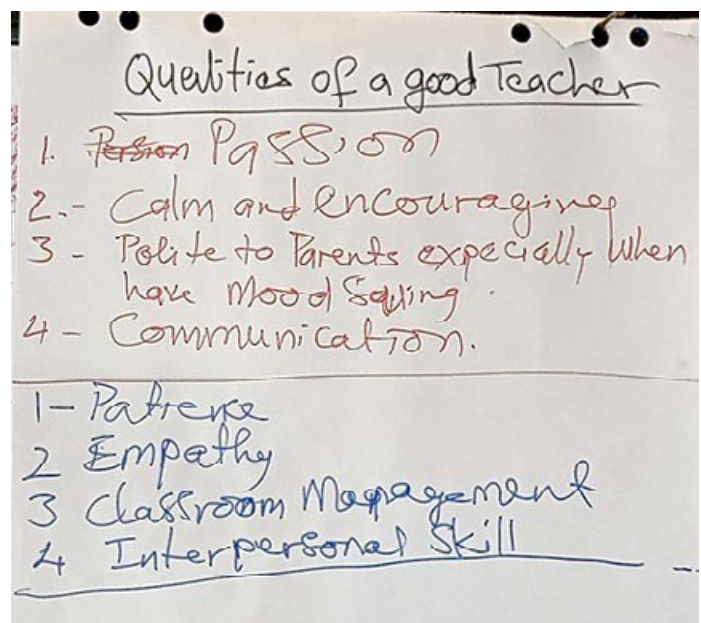 Qualities of a good Teacher
1. Passion
2.- Calm and encouraging
3 - Polite to Parents expecially when
have mood Swing.
4 - Communication.
1- Patience
2 Empathy
3 Classroom Management
4 Interpersonal Skill